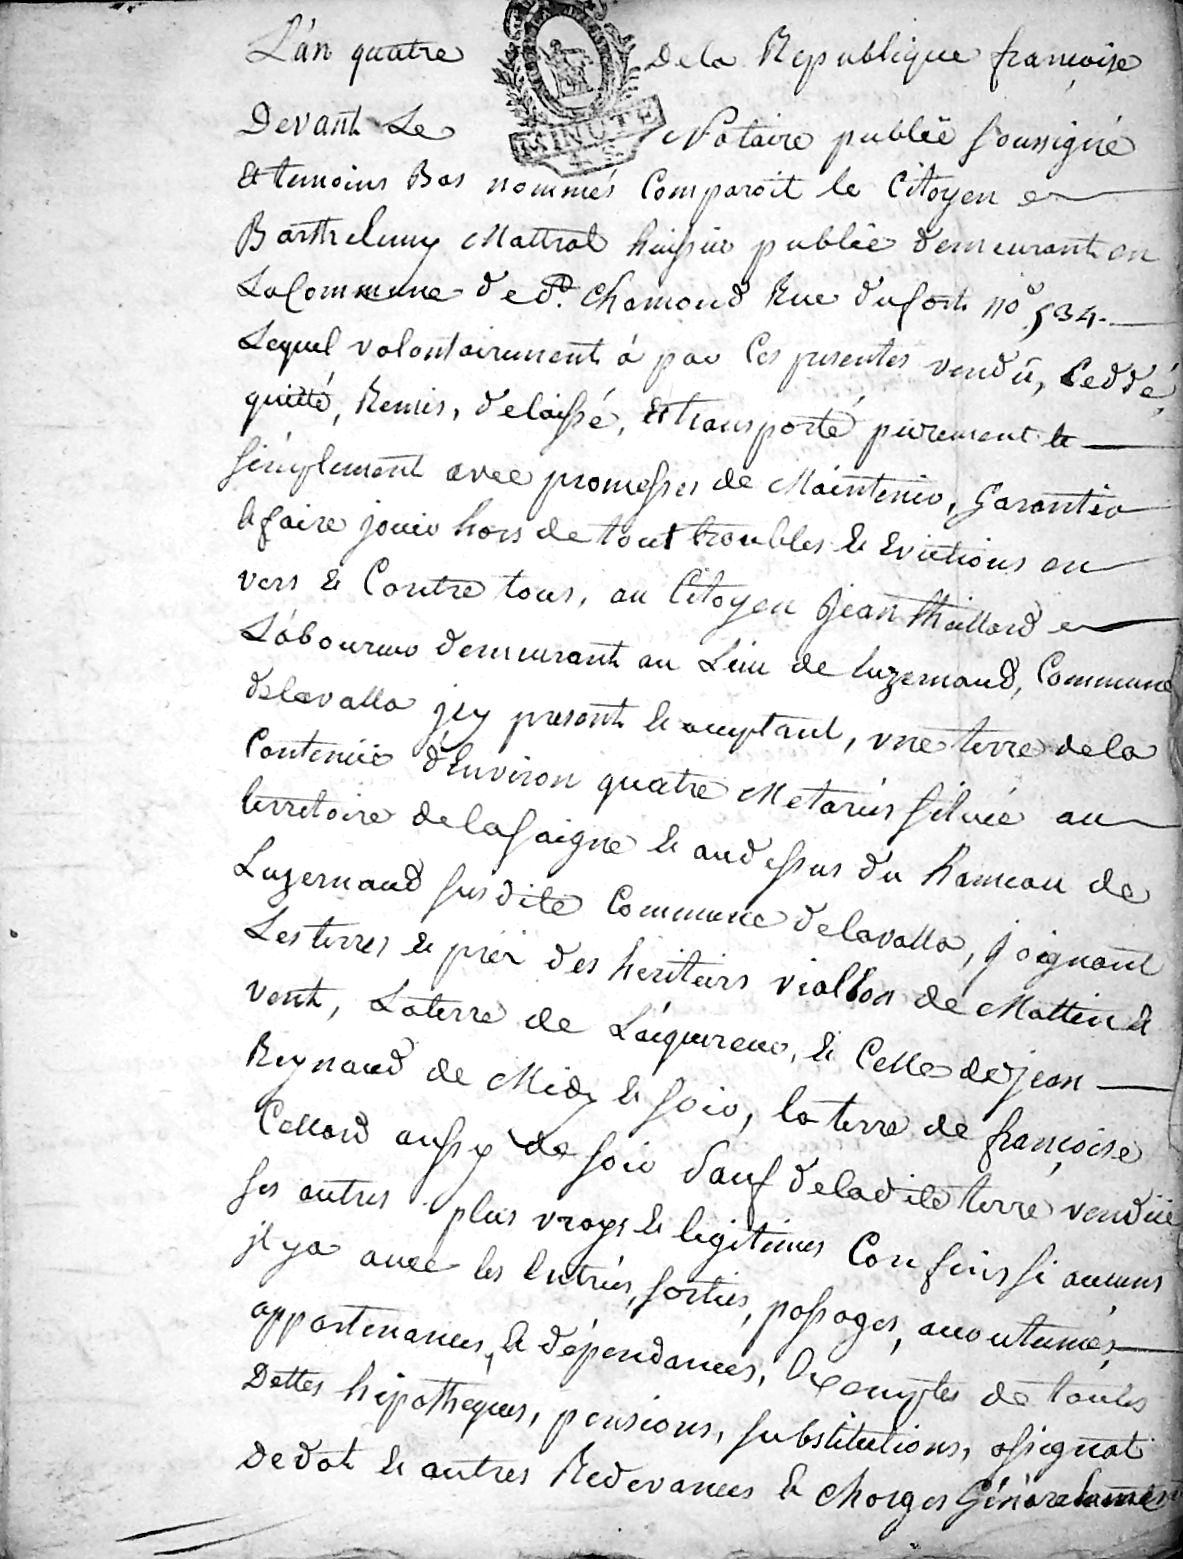 L'an quatre de la Republique françoise
MINUTE
Devant Le Notaire publiĉ soussigné
Et temoins Bas nommés Comparoit le Citoyen
Barthelemy Mattrat huissier publiĉ demeurant en
La Commune de St. Chamond Rue du fort no. 534.
Lequel volontairement à par Ces presentes vendû, Ceddé,
quitté, Remis, delaissé, & transporté purement &
simplement avec promesses de Maintenir, Garantir
& faire jouir hors de tout troubles & Evictions en
vers & Contre tous, au Citoyen Jean Thiollard
Laboureur demeurant au Lieu de Luzernaud, Commune
delavalla jcy present & acceptant, une terre de la
Contenüe d'Environ quatre Metariés sitüée au
territoire de la faigne & au dessus du Hameau de
Luzernaud susdite Commune delavalla, joignant
Les terres & préz des heritiers viallon de Mattin &
vent, La terre de & Celle de jean
Reynaud de Midy & soir, la terre de françoise
Cellard aussy de soir sauf de la dite terre vendüe
ses autres plus vrays & legitimes Confins si aucuns
jl y a avec les Entrées, sorties, passages, accoutumés,
appartenances, & dépendances, Exemptes de toutes
Dettes hipotheques, pensions, substitutions, assignat
de dot & autres Redevances & charges Généralement